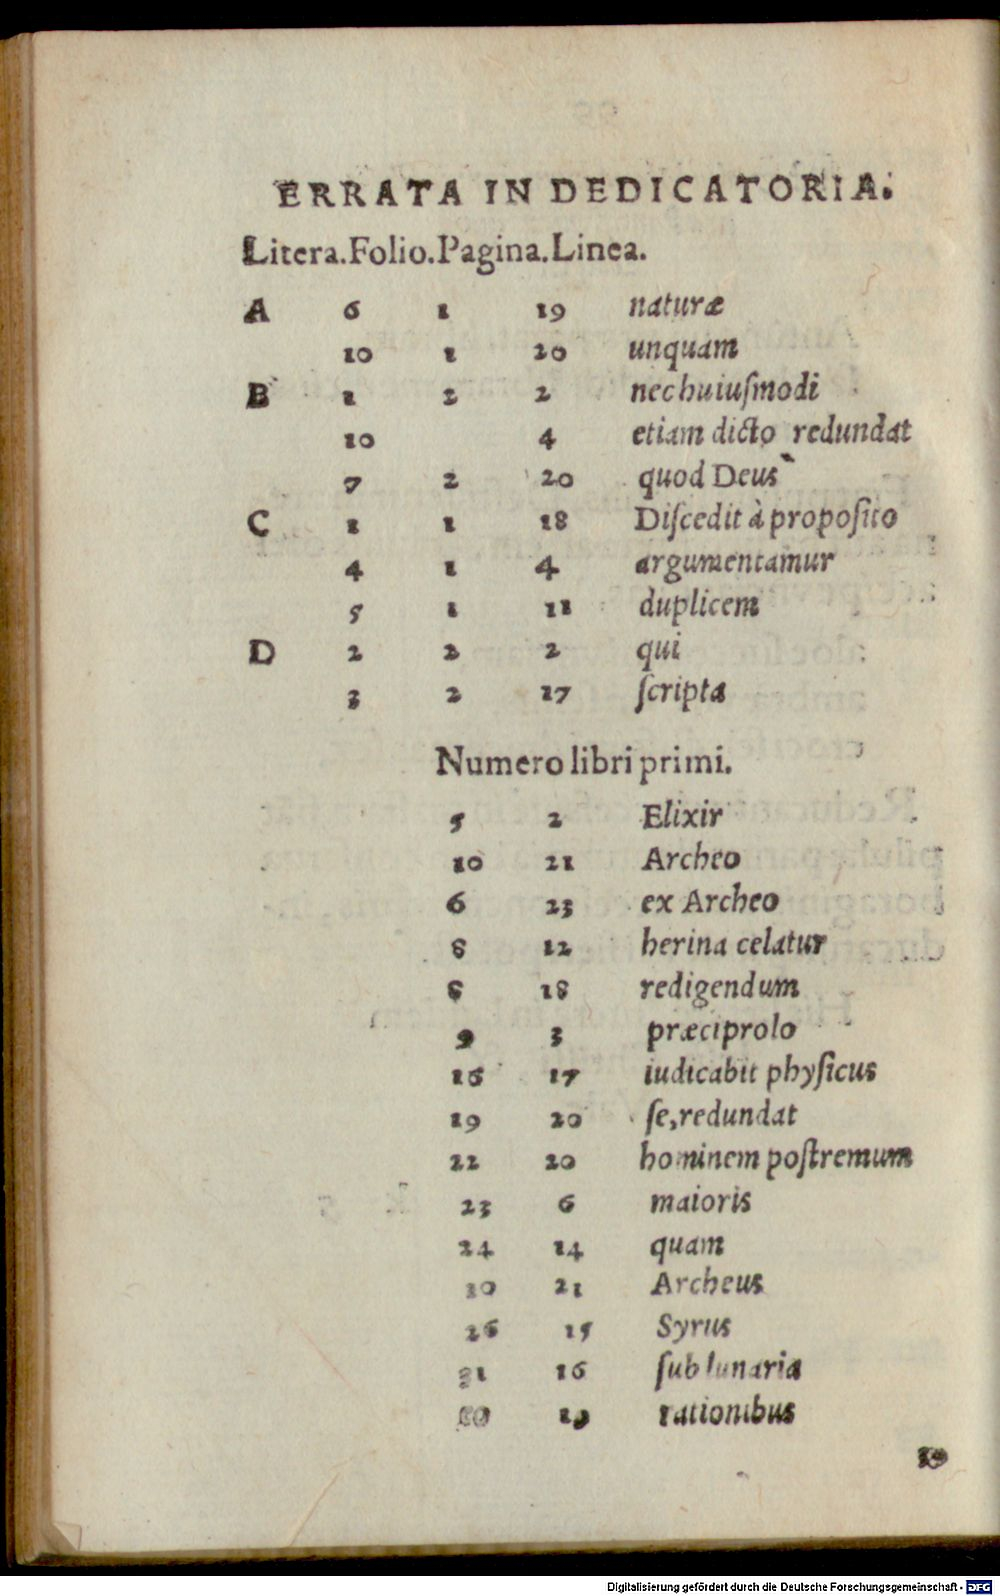 ERRATA IN DEDICATORIA.
Litera. Folio. Pagina. Linea.
A 6 1 19 naturæ
10 1 20 unquam
B 1 2 2 nec huiuſmodi
10 4 etiam dicto redundat
7 2 20 quod Deus
C 1 1 18 Diſcedit à propoſito
4 1 4 argumentamur
5 1 11 duplicem
D 2 2 2 qui
3 2 17 ſcripta
Numero libri primi.
5 2 Elixir
10 21 Archeo
6 23 ex Archeo
8 12 herina celatur
8 18 redigendum
9 3 præciprolo
16 17 iudicabit phyſicus
19 20 ſe, redundat
22 20 hominem poſtremum
23 6 maioris
24 14 quam
10 21 Archeus
26 15 Syrus
31 16 ſub lunaria
19 rationibus
Digitalisierung gefördert durch die Deutsche Forschungsgemeinschaft - DFG